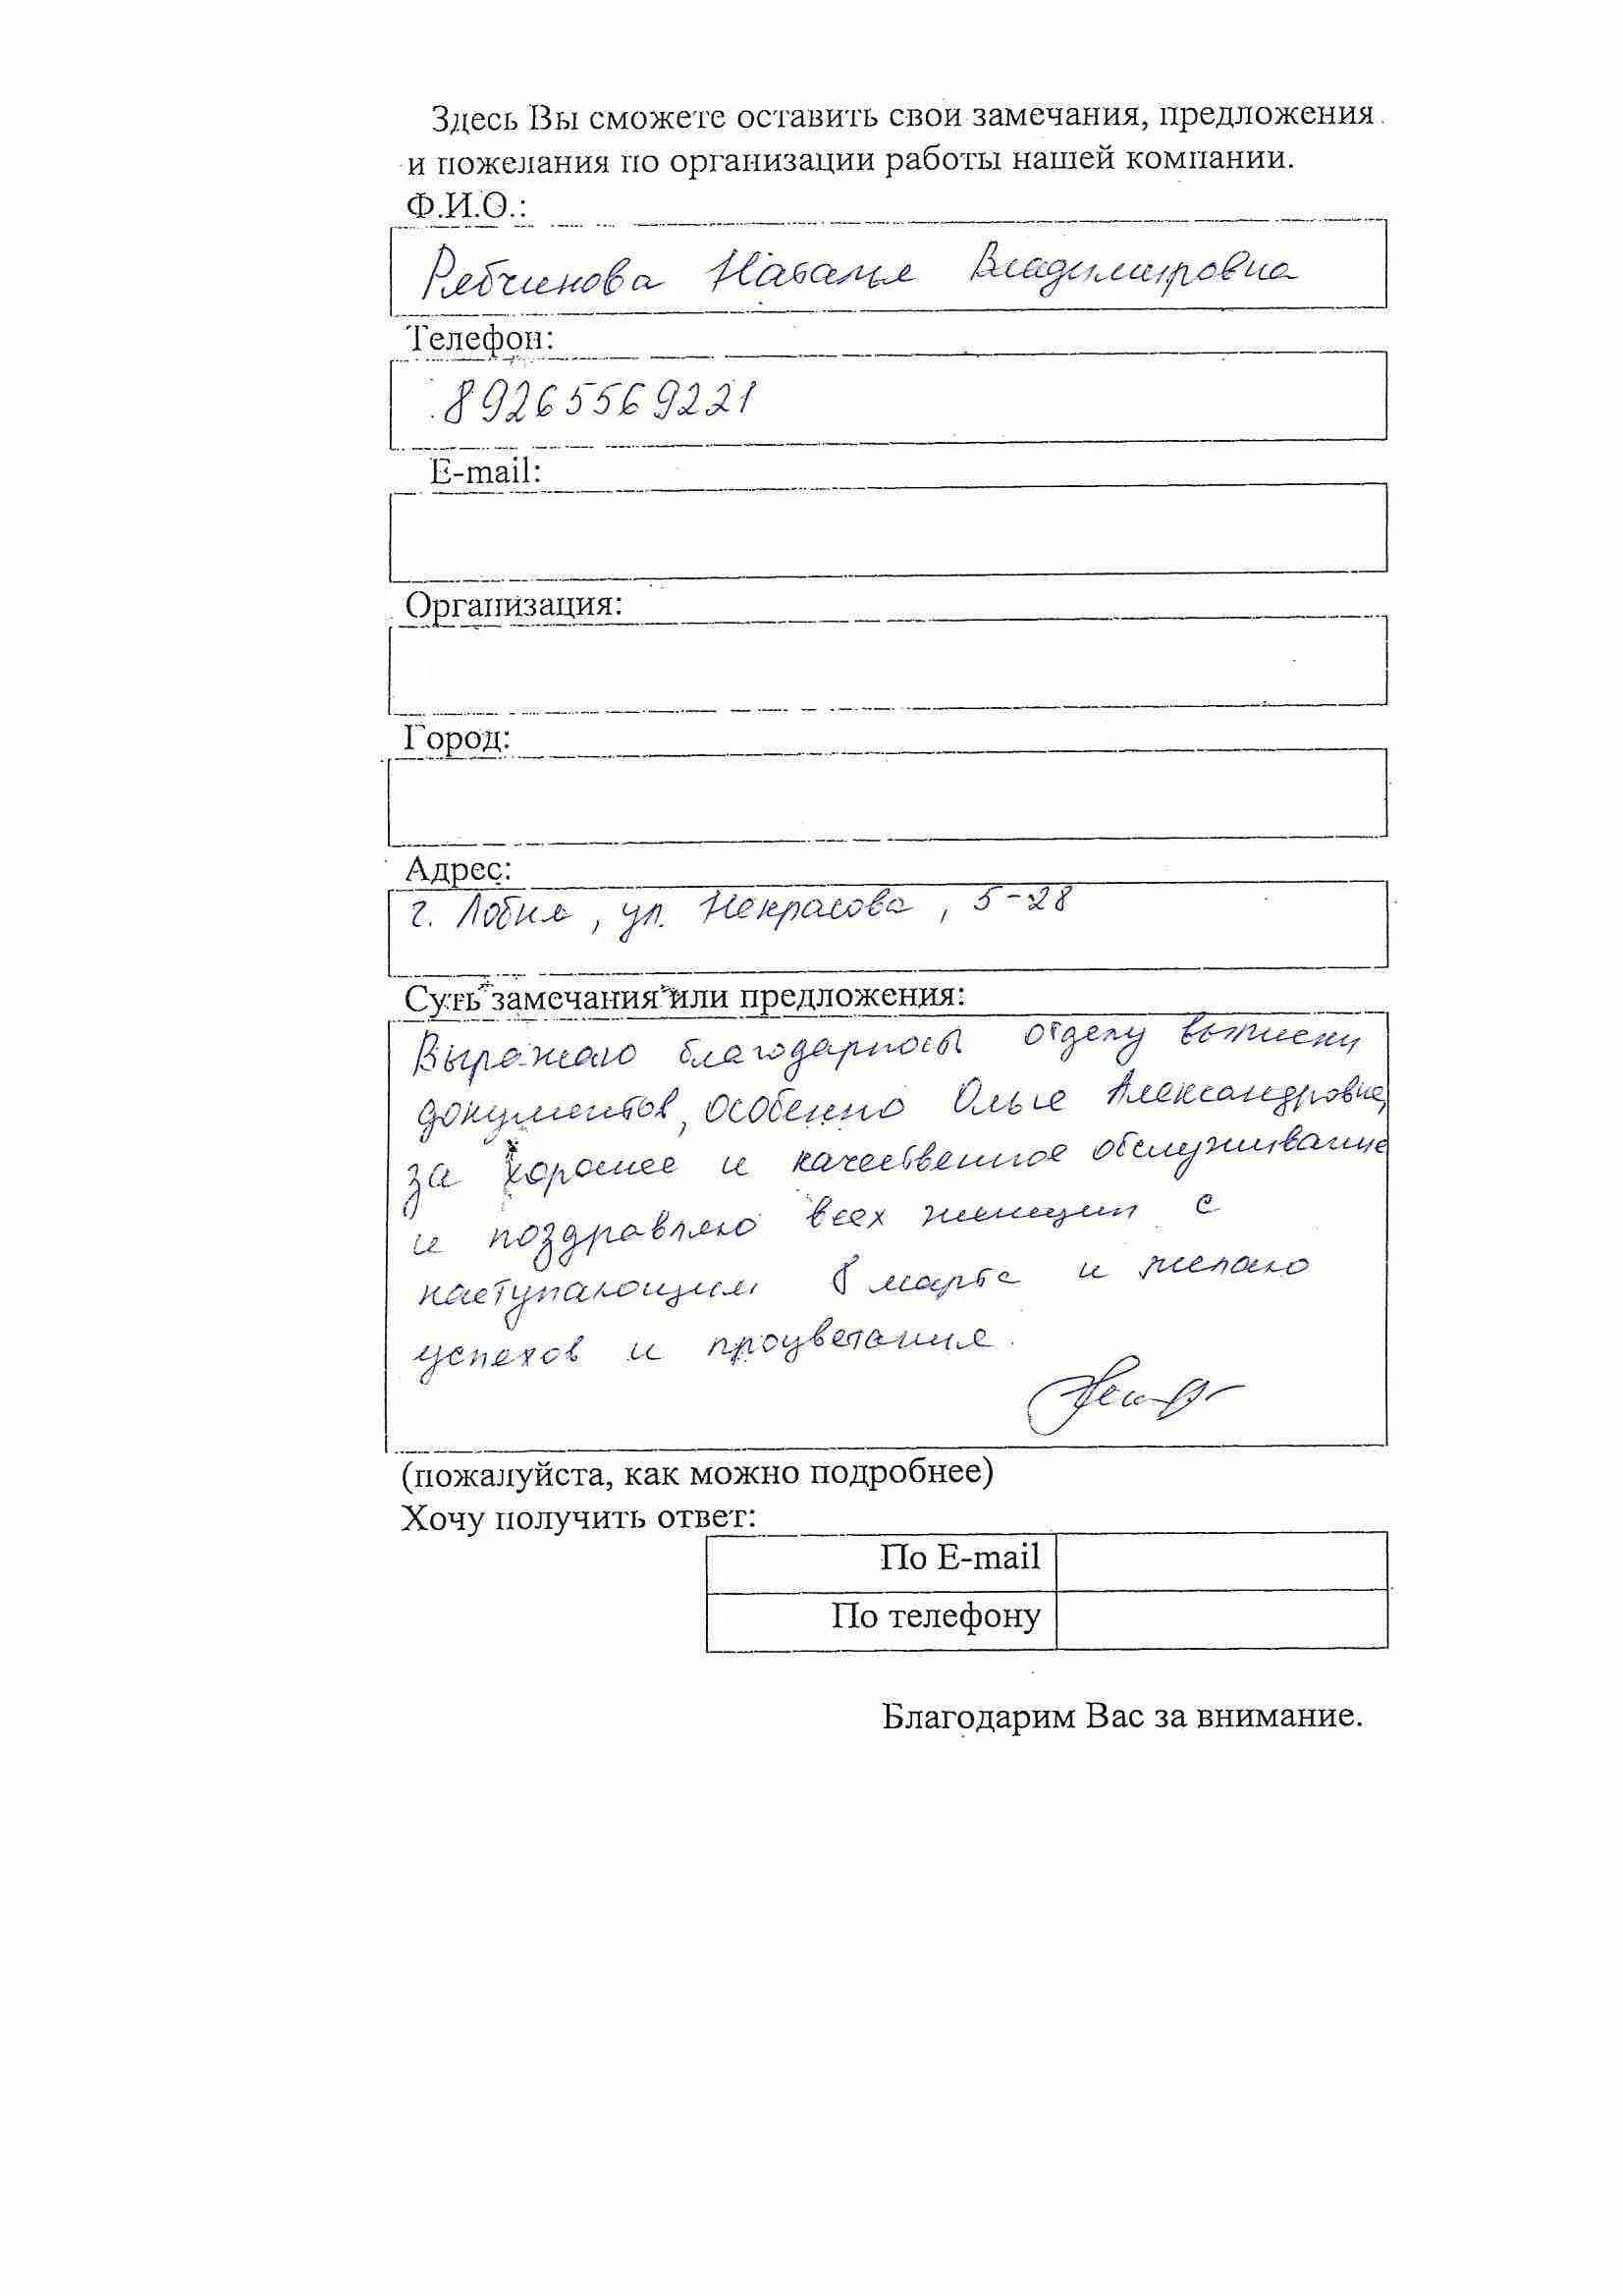 Здесь Вы сможете оставить свои замечания, предложения
и пожелания по организации работы нашей компании.
Ф.И.О.:
Рябчинова Наталья Владимировна
Телефон:
89265569221
E-mail:
Организация:
Город:
Адрес:
г. Лобня, ул. Некрасова, 5-28
Суть замечания или предложения:
Выражаю благодарность отделу выписки
документов, особенно Ольге Александровне,
за хорошее и качественное обслуживание
и поздравляю всех женщин с
наступающим 8 марта и желаю
успехов и процветания.
(пожалуйста, как можно подробнее)
Хочу получить ответ:
По E-mail
По телефону
Благодарим Вас за внимание.